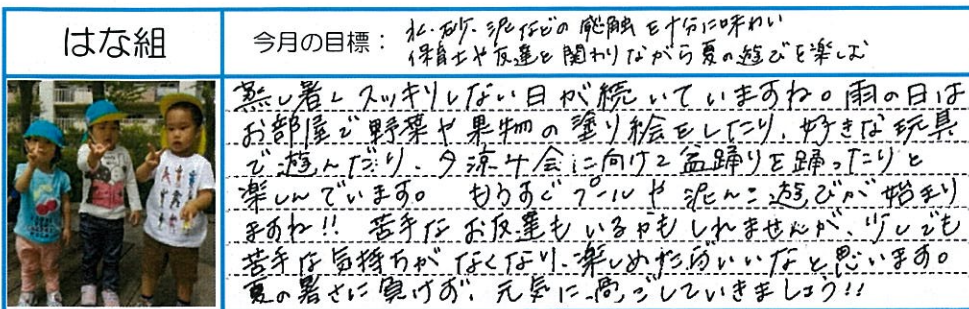 はな組
今月の目標: 水・砂・泥などの感触を十分に味わい
保育士や友達と関わりながら夏の遊びを楽しむ
蒸し暑しスッキリしない日が続いていますね。雨の日は
お部屋で野菜や果物の塗り絵をしたり、好きな玩具
で遊んだり、夕涼み会に向けて盆踊りを踊ったりと
楽しんでいます。 もうすぐプールや泥んこ遊びが始まり
ますね!! 苦手なお友達もいるかもしれませんが、少しでも
苦手な気持ちがなくなり、楽しめたらいいなと思います。
夏の暑さに負けず、元気に過ごしていきましょう!!